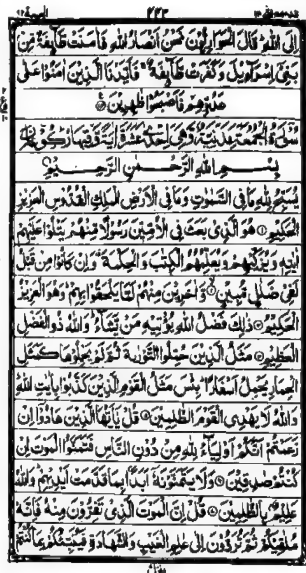 إِلَى اللَّهِ قَالَ الْحَوَارِيُّونَ نَحْنُ أَنْصَارُ اللَّهِ فَآمَنَتْ طَائِفَةٌ مِنْ
بَنِي إِسْرَائِيلَ وَكَفَرَتْ طَائِفَةٌ فَأَيَّدْنَا الَّذِينَ آمَنُوا عَلَى
عَدُوِّهِمْ فَأَصْبَحُوا ظَاهِرِينَ
سُورَةُ الْجُمُعَةِ مَدَنِيَّةٌ وَهِيَ إِحْدَى عَشْرَةَ آيَةً
بِسْمِ اللَّهِ الرَّحْمَٰنِ الرَّحِيمِ
يُسَبِّحُ لِلَّهِ مَا فِي السَّمٰوٰتِ وَمَا فِي الْأَرْضِ الْمَلِكِ الْقُدُّوسِ الْعَزِيزِ
الْحَكِيمِ هُوَ الَّذِي بَعَثَ فِي الْأُمِّيِّينَ رَسُولًا مِنْهُمْ يَتْلُوا عَلَيْهِمْ
آيٰتِهِ وَيُزَكِّيهِمْ وَيُعَلِّمُهُمُ الْكِتٰبَ وَالْحِكْمَةَ وَإِنْ كَانُوا مِنْ قَبْلُ
لَفِي ضَلٰلٍ مُبِينٍ وَآخَرِينَ مِنْهُمْ لَمَّا يَلْحَقُوا بِهِمْ وَهُوَ الْعَزِيزُ
الْحَكِيمُ ذٰلِكَ فَضْلُ اللَّهِ يُؤْتِيهِ مَنْ يَشَاءُ وَاللَّهُ ذُو الْفَضْلِ
الْعَظِيمِ مَثَلُ الَّذِينَ حُمِّلُوا التَّوْرٰىةَ ثُمَّ لَمْ يَحْمِلُوهَا كَمَثَلِ
الْحِمَارِ يَحْمِلُ أَسْفَارًا بِئْسَ مَثَلُ الْقَوْمِ الَّذِينَ كَذَّبُوا بِآيٰتِ اللَّهِ
وَاللَّهُ لَا يَهْدِي الْقَوْمَ الظّٰلِمِينَ قُلْ يٰأَيُّهَا الَّذِينَ هَادُوا إِنْ
زَعَمْتُمْ أَنَّكُمْ أَوْلِيَاءُ لِلَّهِ مِنْ دُونِ النَّاسِ فَتَمَنَّوُا الْمَوْتَ إِنْ
كُنْتُمْ صٰدِقِينَ وَلَا يَتَمَنَّوْنَهُ أَبَدًا بِمَا قَدَّمَتْ أَيْدِيهِمْ وَاللَّهُ
عَلِيمٌ بِالظّٰلِمِينَ قُلْ إِنَّ الْمَوْتَ الَّذِي تَفِرُّونَ مِنْهُ فَإِنَّهُ
مُلٰقِيكُمْ ثُمَّ تُرَدُّونَ إِلَى عٰلِمِ الْغَيْبِ وَالشَّهَادَةِ فَيُنَبِّئُكُمْ بِمَا كُنْتُمْ